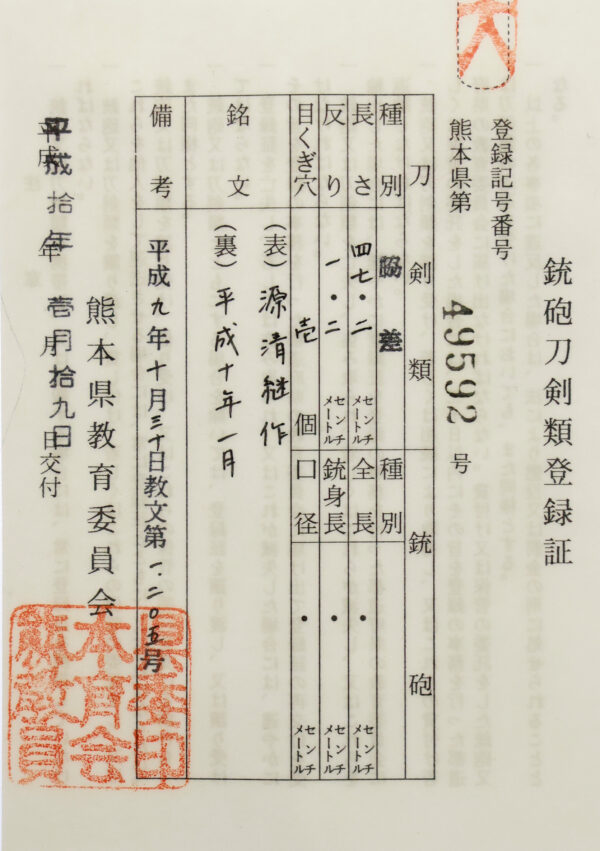 銃砲刀剣類登録証
登録記号番号
熊本県第 49592 号
刀剣類
銃砲
種別 脇差
種別
長さ 四七・二 センチメートル
全長 ・ センチメートル
反り 一・二 センチメートル
銃身長 ・ センチメートル
目くぎ穴 壱 個
口径 ・ センチメートル
銘文
(表)源清継作
(裏)平成十年一月
備考 平成九年十月三十日教文第一、二〇五号
熊本県教育委員会
平成拾年壱月拾九日交付
県委印
本育会
熊教員